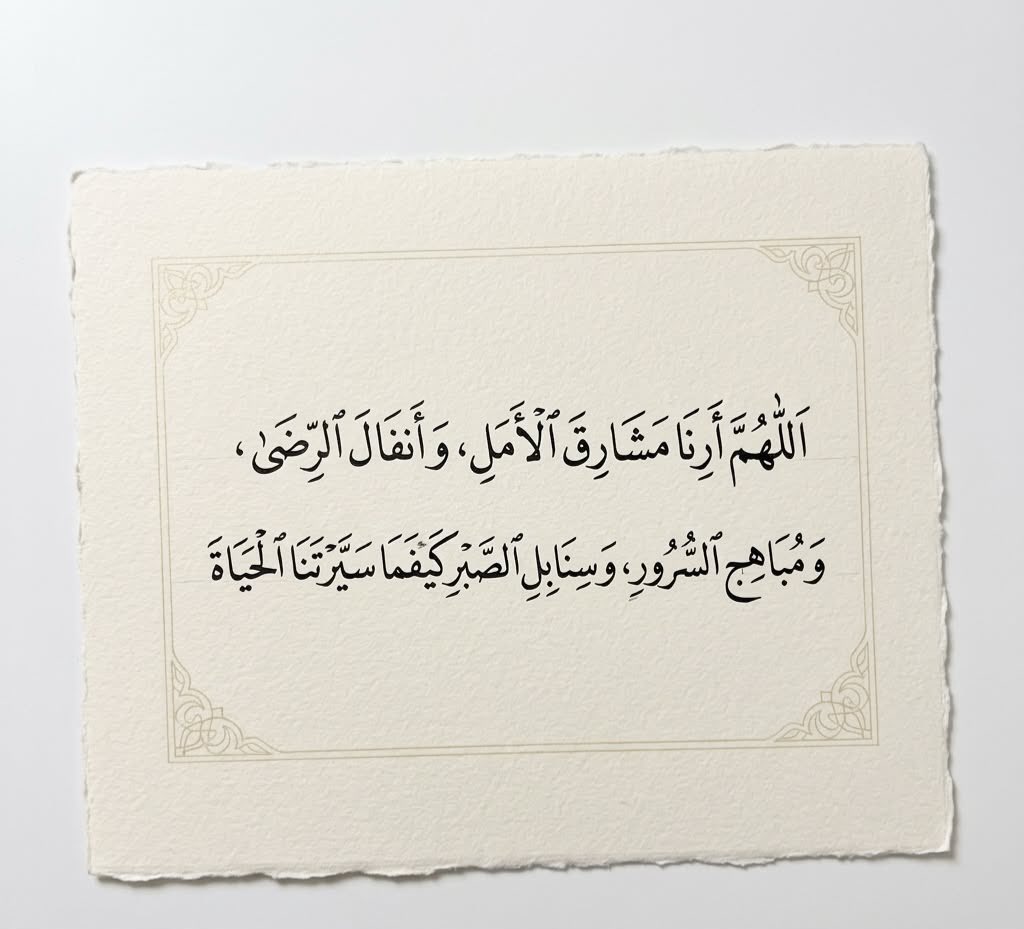 اَللّٰهُمَّ أَرِنَا مَشَارِقَ ٱلْأَمَلِ، وَأَنفَالَ ٱلرِّضَىٰ،
وَمُبَاهِجِ ٱلسُّرُورِ، وَسِنَابِلِ ٱلصَّبْرِ كَيْفَمَا سَيَّرْتَنَا ٱلْحَيَاةَ